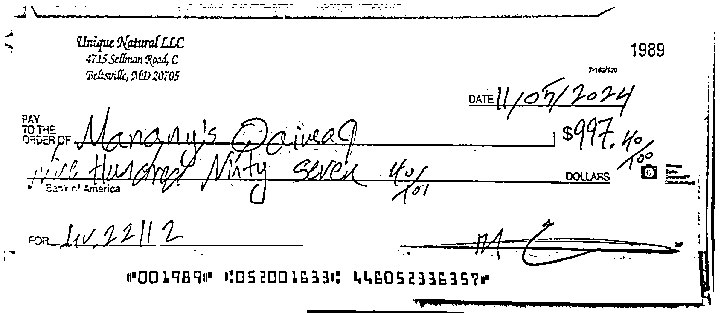 Unique Natural LLC
4715 Sellman Road, C
Beltsville, MD 20705
1989
DATE 11/05/2024
PAY TO THE ORDER OF
$997. 40/100
Nine Hundred Ninty seven 40/101
DOLLARS
Bank of America
FOR Inv. 22112
⑈001989⑈ ⑆052001633⑆ 446052336357⑈